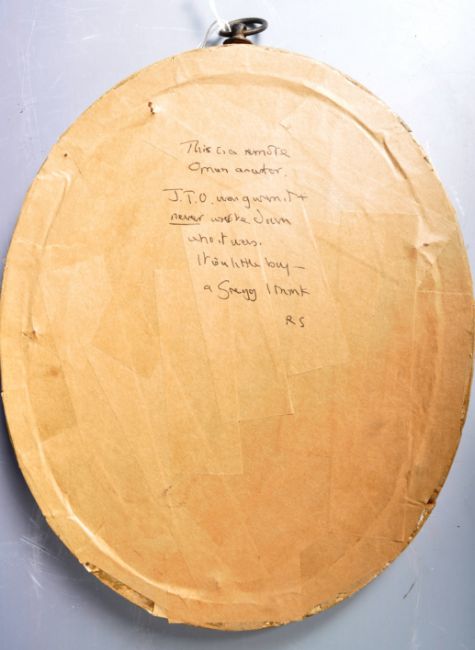 This is a remote
Oman ancestor.
J.T.O. was given it &
never wrote down
who it was.
It is a little boy —
a Gregg I think
RS